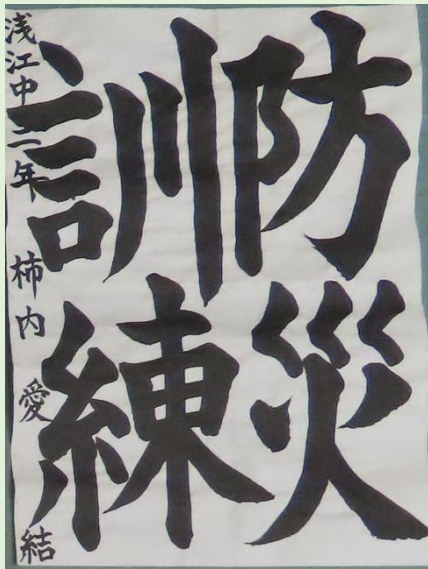 防災
訓練
浅江中二年 柿内愛結